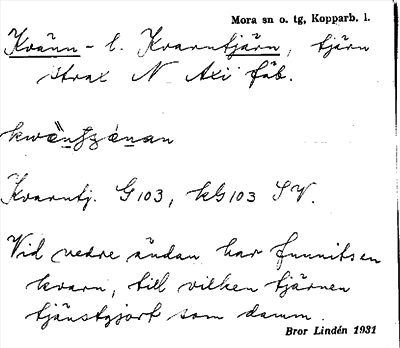 Mora sn o. tg, Kopparb. l.
Kvänn- l. Kvarntjärn, tjärn
strax N Axi fäb.
Kvarntj. G103, kG103 SV.
Vid nedre ändan har funnits en
kvarn, till vilken tjärnen
tjänstgjort som damm.
Bror Lindén 1931